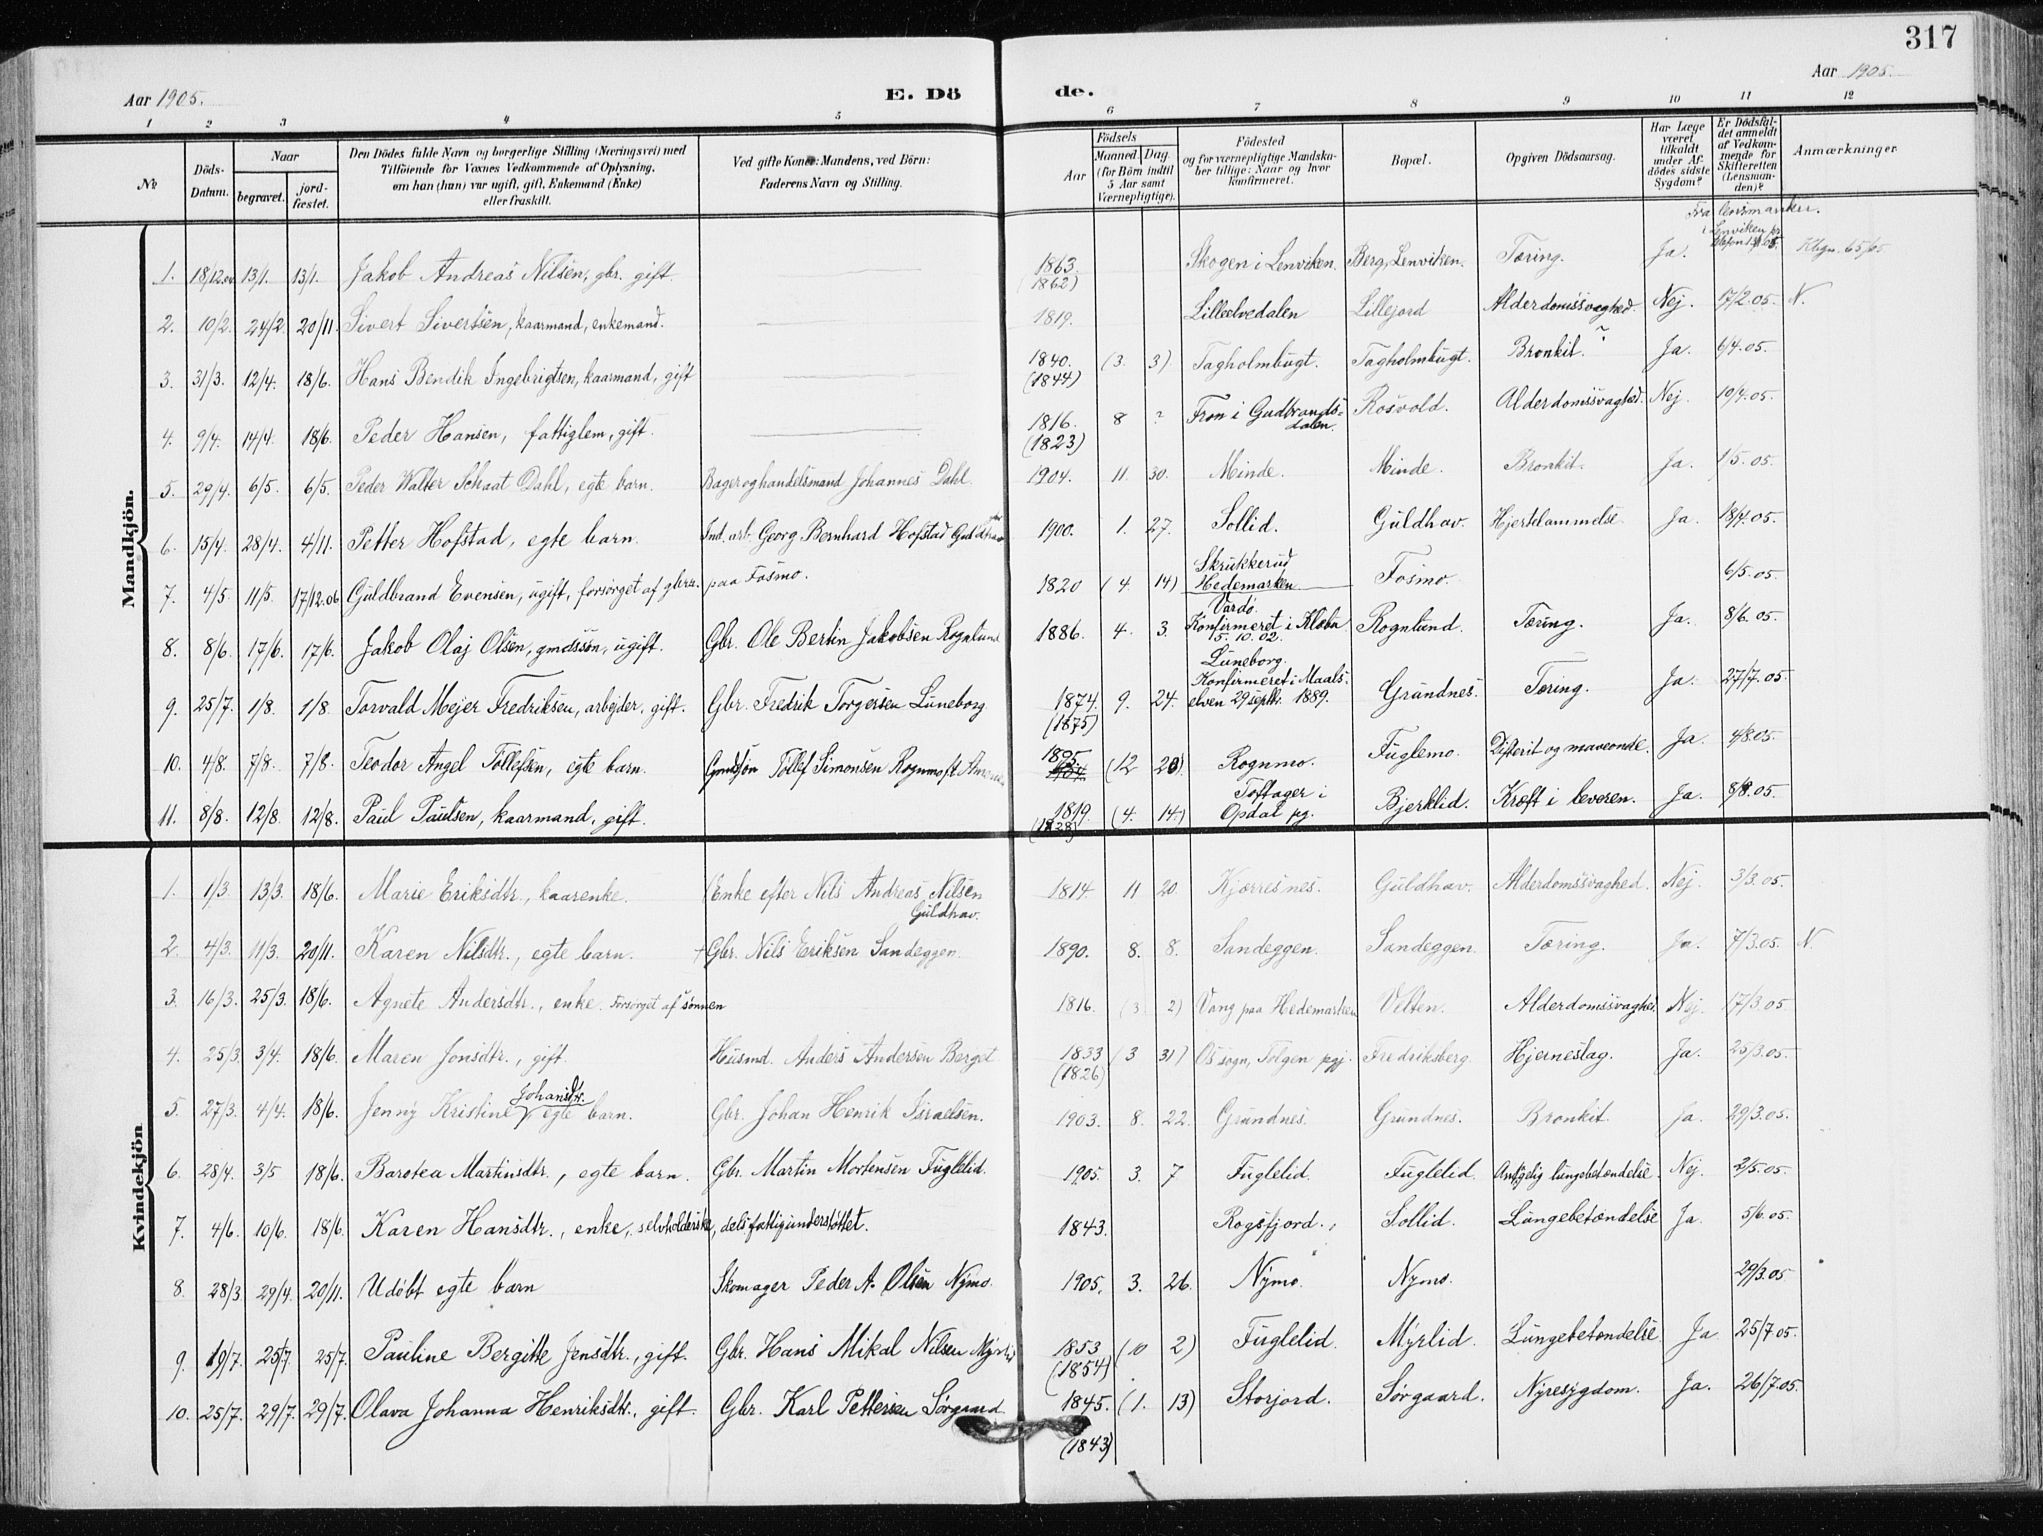 317
Aar 1905. E. Dö de. Aar 1905.
1 2 3 4 5 6 7 8 9 10 11 12
No Döds-Datum. Naar begravet. jord-fæstet. Den Dödes fulde Navn og borgerlige Stilling (Næringsvei) med Tilföiende for Voxnes Vedkommende af Oplysning, om han (hun) var ugift, gift, Enkemand (Enke) eller fraskilt. Ved gifte Koner: Mandens, ved Börn: Faderens Navn og Stilling. Födsels Aar Maaned. Dag. (for Börn indtil 5 Aar samt Værnepligtige). Födested og for værnepligtige Mandskaber tillige: Naar og hvor konfirmeret. Bopæl. Opgiven Dödsaarsag. Har Læge været tilkaldt under Afdödes sidste Sygdom? Er Dödsfaldet anmeldt af Vedkommende for Skifteretten (Lensmanden)? Anmærkninger
Mandkjön.
Fra lensmanden i Lenviken
1. 18/12.04 13/1. 13/1. Jakob Andreas Nilsen, gbr. gift. 1863. (1862) Skogen i Lenviken. Berg, Lenviken. Tæring. Ja. 65/05
2. 10/2. 24/2. 20/11. Sivert Sivertsen, kaarmand, enkemand. 1819. Lilleelvedalen Lillejord Alderdomssvaghed. Nej. 17/2.05. N.
3. 31/3. 12/4. 18/6. Hans Bendik Ingebrigtsen, kaarmand, gift 1840. (1844) (3. 3) Tagholmbugt. Tagholmbugt. Bronkit. ~ Ja. 6/4.05.
4. 9/4. 14/4. 18/6. Peder Hansen, fattiglem, gift. 1816. (1823) 8 ? Fron i Gudbrandsdalen. Rosvold. Alderdomssvaghed. Nej. 10/4.05.
5. 29/4. 6/5. 6/5. Peder Walter Schaat Dahl, egte barn. Bager og handelsmand Johannes Dahl. 1904. 11. 30. Minde. Minde. Bronkit. Ja. 1/5.05.
6. 15/4. 28/4. 4/11. Petter Hofstad, egte barn. Ind. arb. Georg Bernhard Hofstad Guldhav 1900. 1. 27. Sollid. Guldhav. Hjertelammelse. Ja. 18/4.05.
7. 4/5. 11/5. 17/12.06 Guldbrand Evensen, ugift, forsørget af gbrne. paa Fosmo. 1820 (4. 14) Skrukkerud Hedemarken Fosmo. 6/5.05.
8. 8/6. 17/6. 17/6. Jakob Olaj Olsen, gmdssøn, ugift. Gbr. Ole Bertin Jakobsen Rognlund 1886. 4. 3. Vardø. Konfirmeret i Klæbu 5.10.02. Rognlund. Tæring. Ja. 8/6.05.
9. 25/7. 1/8. 1/8. Torvald Mejer Fredriksen, arbejder, gift. Gbr. Fredrik Torgersen Luneborg 1874. (1875) 9. 24. Luneborg. Konfirmeret i Maalselven 29 septbr. 1889. Grundnes. Tæring. Ja. 27/7.05.
10. 4/8. 7/8. 7/8. Teodor Angel Tollefsen, egte barn. Gmdssøn Tollef Simonsen Rognmo 1895 1904. (12 20) Rognmo. Fuglemo. Difterit og maveonde. Ja. 4/8.05.
11. 8/8. 12/8. 12/8. Paul Paulsen, kaarmand, gift. 1819. (1828) (4. 14) Toftager i Opdal pg. Bjerklid. Kræft i leveren. Ja. 8/8.05.
Kvindekjön
1. 1/3 13/3. 18/6. Marie Eriksdtr., kaarenke. (Enke efter Nils Andreas Nilsen Guldhav. 1814. 11 20. Kjærresnes. Guldhav. Alderdomssvaghed. Nej. 3/3.05.
2. 4/3. 11/3. 20/11. Karen Nilsdtr., egte barn. + Gbr. Nils Eriksen Sandeggen. 1890. 8. 8. Sandeggen. Sandeggen. Tæring. Ja. 7/3.05. N.
3. 16/3. 25/3. 18/6. Agnete Andersdtr., enke. Forsørget af sønnen 1816. (3. 2) Vang paa Hedemarken Velten. Alderdomssvaghed. Nej. 17/3.05
4. 25/3. 3/4. 18/6. Maren Jonsdtr., gift. Husmd. Anders Andersen Berget 1833 (1826) (3 31) Os sogn, Tolgen pgj. Fredriksberg. Hjerneslag. Ja. 25/3.05.
5. 27/3. 4/4. 18/6. Jenny Kristine Johansdtr. egte barn. Gbr. Johan Henrik Israelsen. 1903. 8. 22. Grundnes. Grundnes. Bronkit. Ja. 29/3.05.
6. 28/4. 3/5 18/6. Barotea Martinsdtr., egte barn. Gbr. Martin Mortensen Fuglelid. 1905. 3. 7 Fuglelid. Fuglelid. Antagelig lungebetændelse. Nej. 2/5.05.
7. 4/6. 10/6. 18/6. Karen Hansdtr., enke, selvholderske, dels fattigunderstøttet. 1843. Rogsfjord. Sollid. Lungebetændelse Ja. 5/6.05.
8. 28/3. 29/4. 20/11. Udøbt egte barn Skomager Peder A. Olsen Nymo. 1905. 3. 26. Nymo. Nymo. 29/3.05
9. 19/7. 25/7. 25/7. Pauline Bergitte Jensdtr., gift. Gbr. Hans Mikal Nilsen Myrlid 1853 (1854) (10 2) Fuglelid. Myrlid. Lungebetændelse Ja 25/7.05.
10. 25/7. 29/7. 29/7. Olava Johanna Henriksdtr., gift. Gbr. Karl Pettersen Sørgaard 1845. (1843) (1. 13) Storjord. Sørgaard. Nyresygdom. Ja. 26/7.05.